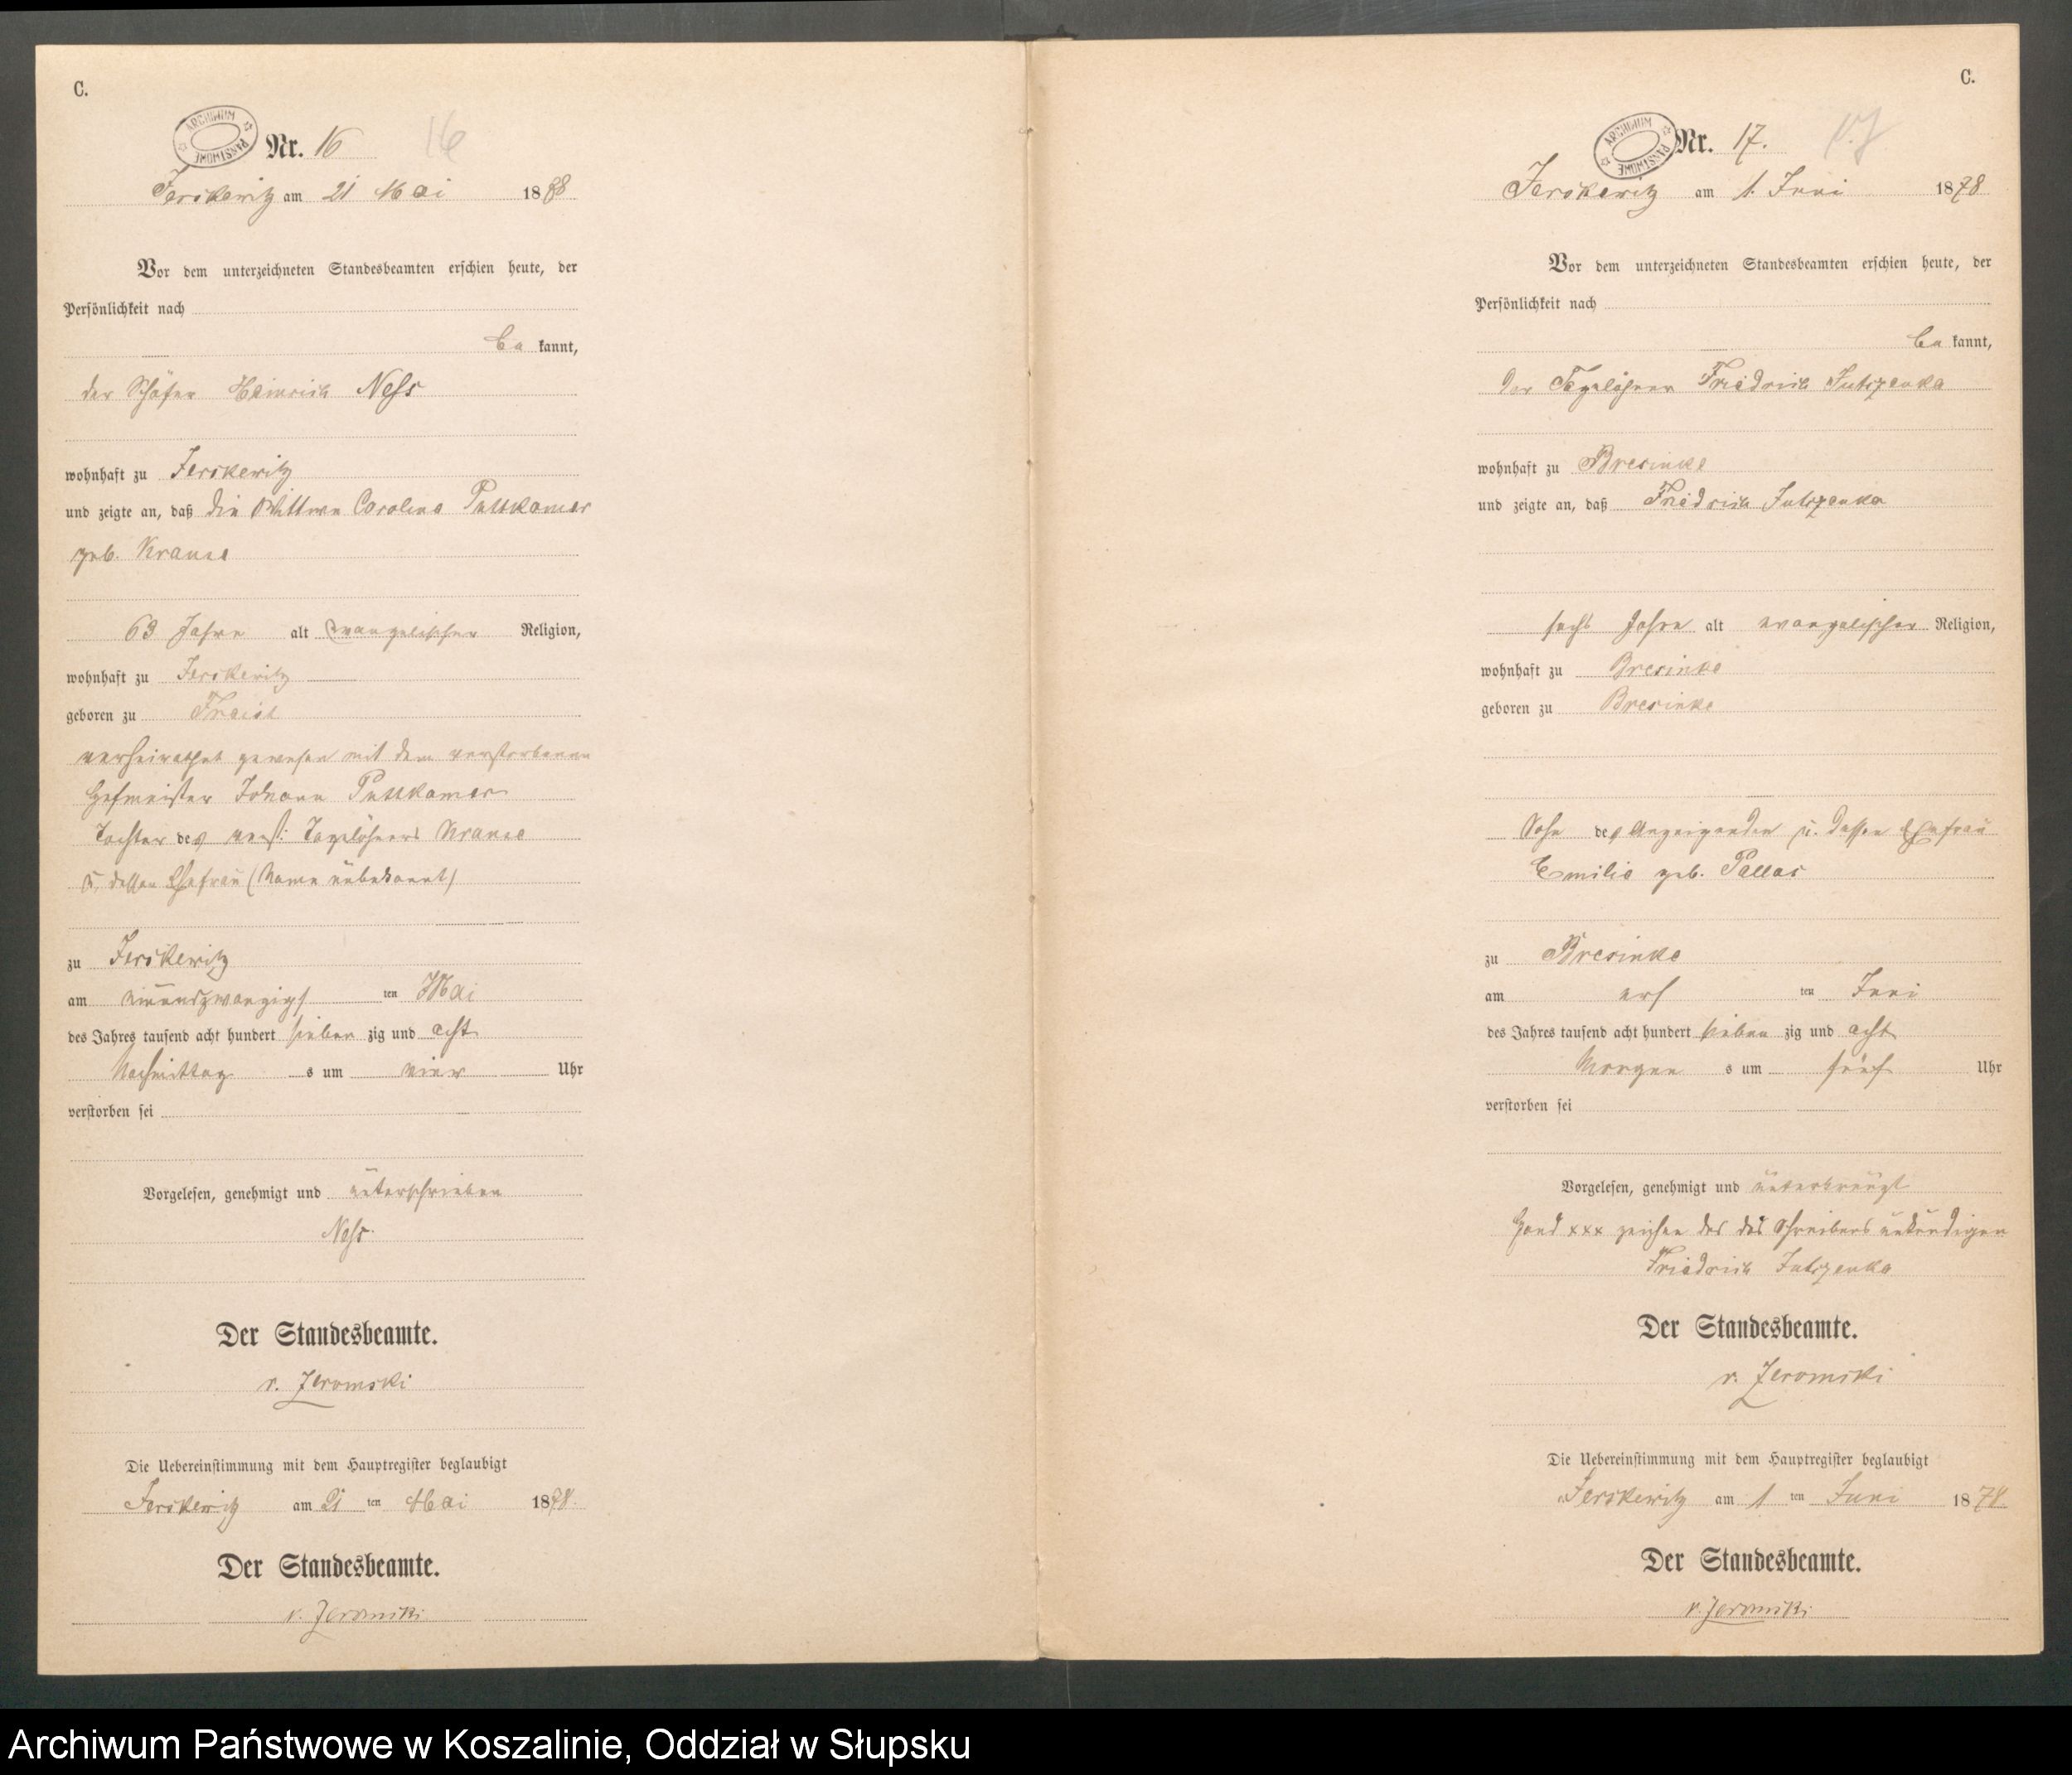 C.
ARCHIWUM PAŃSTWOWE
Nr. 16
16
Jerskewitz am 21 Mai 1878
Vor dem unterzeichneten Standesbeamten erschien heute, der
Persönlichkeit nach
be kannt,
der Schäfer Heinrich Ness
wohnhaft zu Jerskewitz
und zeigte an, daß die Wittwe Caroline Puttkamer
geb. Krause
63 Jahre alt evangelischer Religion,
wohnhaft zu Jerskewitz
geboren zu Freist
verheirathet gewesen mit dem verstorbenen
Hofmeister Johann Puttkamer
Tochter des verst: Tagelöhners Krause
u. dessen Ehefrau (Name unbekannt)
zu Jerskewitz
am einundzwanzigst ten Mai
des Jahres tausend acht hundert sieben zig und acht
Nachmittag s um vier Uhr
verstorben sei
Vorgelesen, genehmigt und unterschrieben
Ness.
Der Standesbeamte.
v. Jeromski
Die Uebereinstimmung mit dem Hauptregister beglaubigt
Jerskewitz am 21 ten Mai 1878.
Der Standesbeamte.
v. Jeromski
C.
ARCHIWUM PAŃSTWOWE
Nr. 17.
Jerskewitz am 1. Juni 1878
Vor dem unterzeichneten Standesbeamten erschien heute, der
Persönlichkeit nach
be kannt,
der Tagelöhner Friedrich Jutrzenka
wohnhaft zu Bresinke
und zeigte an, daß Friedrich Jutrzenka
sechs Jahre alt evangelischer Religion,
wohnhaft zu Bresinke
geboren zu Bresinke
Sohn des Anzeigenden u. dessen Ehefrau
Emilie geb. Pallas
zu Bresinke
am ers ten Juni
des Jahres tausend acht hundert sieben zig und acht
Morgen s um fünf Uhr
verstorben sei
Vorgelesen, genehmigt und unterkreuzt
Hand xxx zeichen des des Schreibens unkundigen
Friedrich Jutrzenka
Der Standesbeamte.
v. Jeromski
Die Uebereinstimmung mit dem Hauptregister beglaubigt
Jerskewitz am 1 ten Juni 1878.
Der Standesbeamte.
v. Jeromski
Archiwum Państwowe w Koszalinie, Oddział w Słupsku